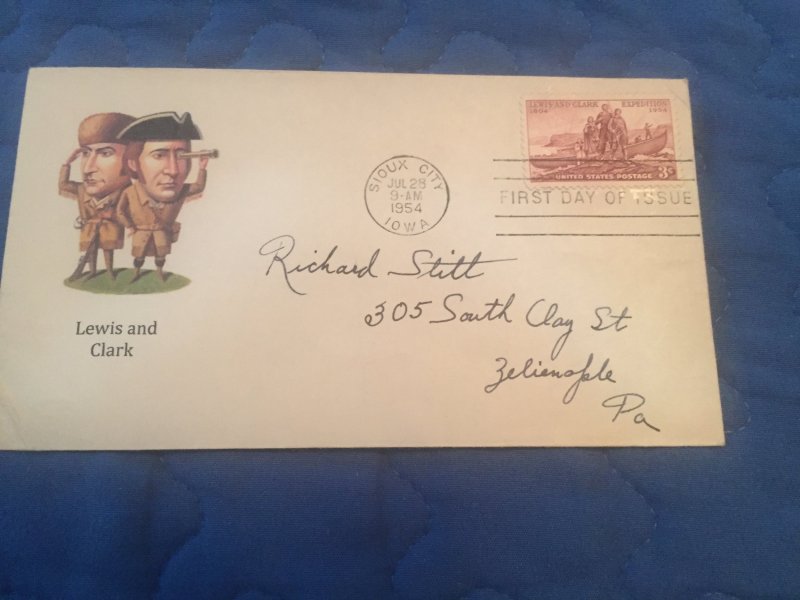 LEWIS AND CLARK EXPEDITION
1804 1954
UNITED STATES POSTAGE 3¢
SIOUX CITY
JUL 28
9-AM
1954
IOWA
FIRST DAY OF ISSUE
Richard Stitt
305 South Clay St
Zelienople
Pa
Lewis and
Clark